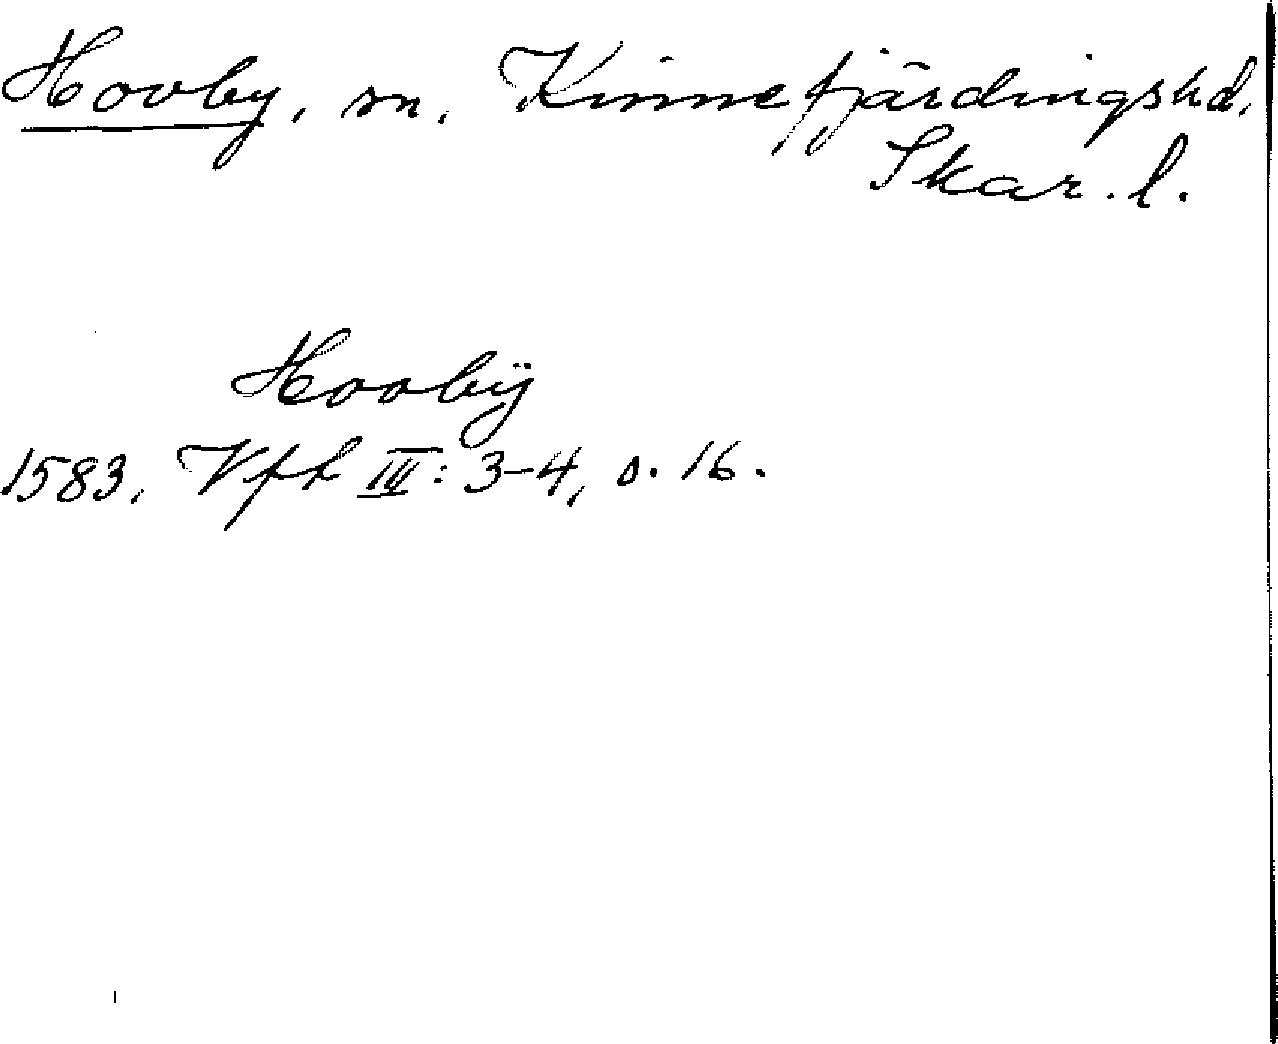 Hovby, sn. Kinnefjärdingshd,
Skar. l.
Hooby̎
1583, Vfh III: 3-4, s. 16.